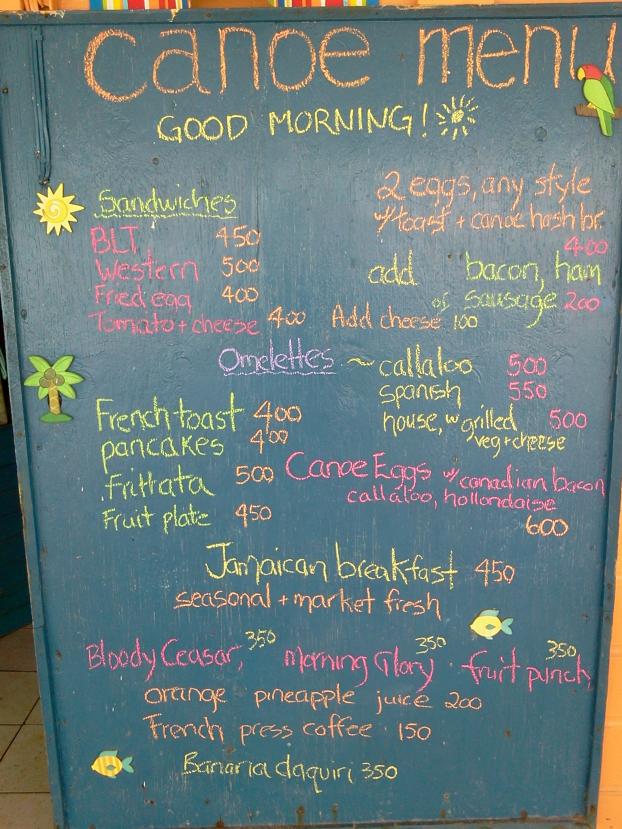 canoe menu
GOOD MORNING!
Sandwiches
BLT 450
Western 500
Fried egg 400
Tomato + cheese 400
2 eggs, any style
w/ toast + canoe hash br.
400
add bacon, ham
or sausage 200
Add cheese 100
Omelettes ~ callaloo 500
spanish 550
house, w/ grilled 500
veg + cheese
French toast 400
pancakes 400
frittata 500
Fruit plate 450
Canoe Eggs w/ canadian bacon
callaloo, hollondaise
600
Jamaican breakfast 450
seasonal + market fresh
Bloody Ceasar, 350 Morning Glory 350 fruit punch 350
orange pineapple juice 200
French press coffee 150
Banana daquiri 350